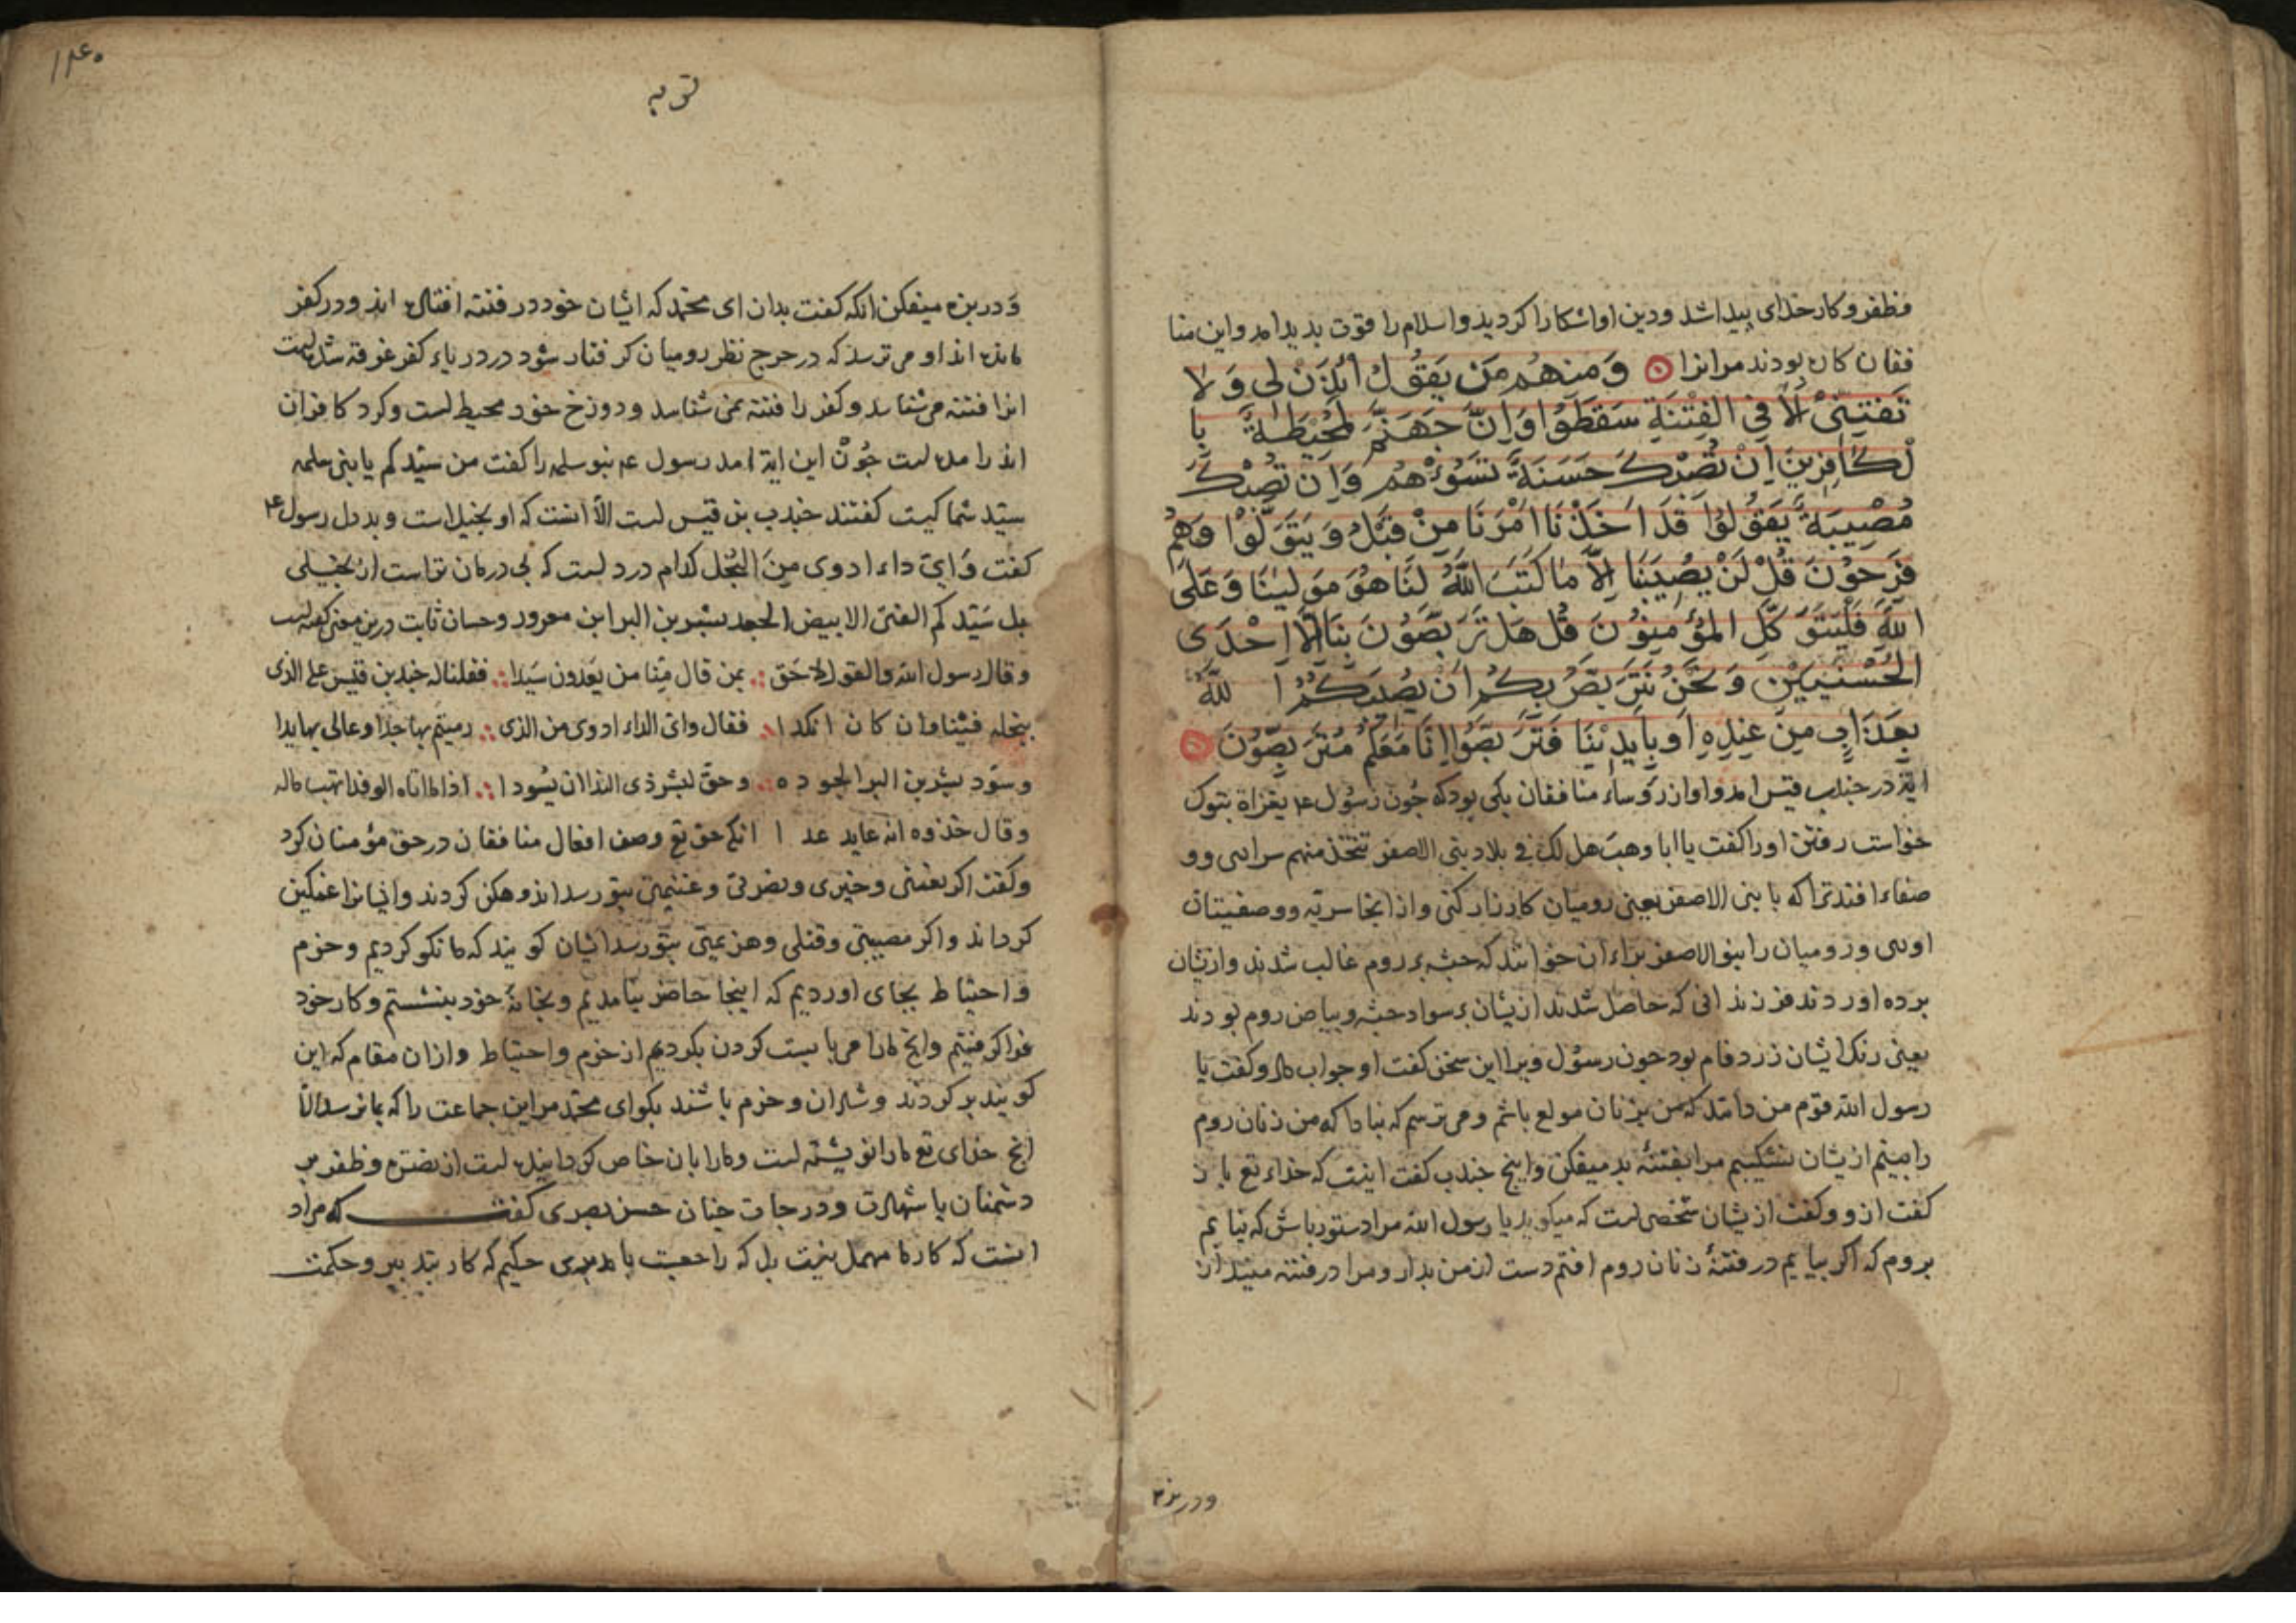 وظفر و کار خذای پیدا شد و دین او اشکارا کردید و اسلام را قوت بدید امد و این منا
فقان کاره بودند مر انرا وَمِنهُم مَن یَقُولُ ائذَن لی وَلا
تَفتِنّی اَلا فِی الفِتنَةِ سَقَطُوا وَاِنَّ جَهَنَّمَ لَمُحیطَةٌ با
لکافِرینَ اِن تُصِبکَ حَسَنَةٌ تَسُؤهُم وَاِن تُصِبکَ
مُصیبَةٌ یَقُولُوا قَد اَخَذنَا اَمرَنَا مِن قَبلُ وَیَتَوَلَّوا وَهُم
فَرِحُونَ قُل لَن یُصیبَنَا اِلَّا مَا کَتَبَ اللّهُ لَنَا هُوَ مَولینَا وَعَلَی
اللّهِ فَلیَتَوَکَّلِ المُؤمِنُونَ قُل هَل تَرَبَّصُونَ بِنَا اِلَّا اِحدَی
الحُسنَیَینِ وَنَحنُ نَتَرَبَّصُ بِکُم اَن یُصیبَکُمُ اللّهُ
بِعَذَابٍ مِن عِندِهِ اَو بِاَیدینَا فَتَرَبَّصُوا اِنَّا مَعَکُم مُتَرَبِّصُونَ
ایة در خبدب قیس امد و او از رؤساء منافقان یکی بود که جون رسول ع م بغزاة بتوک
خواست رفتن او را کفت یا ابا وهب هل لک فی بلاد بنی الاصفر تتخذ منهم سراری و و
صفاء افتد ترا که با بنی الاصفر یعنی رومیان کارزار کنی و از انجا سریّه و وصفیتان
اوری و رومیان را بنو الاصفر براء ان خوانند که حبشه بر روم غالب شدند و ازیشان
برده اوردند فرزندانی که حاصل شدند ازیشان بر سواد حبشه و بیاض روم بودند
یعنی رنک ایشان زرد فام بود جون رسول ویرا این سخن کفت او جواب داد و کفت یا
رسول الله قوم من دانند که من بزنان مولع باشم و می ترسم که نباداکه من زنان روم
را بینم ازیشان نشکیبم مرا بفتنۀ بد میفکن و اینج خبدب کفت اینت که خذاء تع باز
کفت ازو و کفت ازیشان شخصی است که میکوید یا رسول الله مرا دستور باش که نیایم
بروم که اکر بیایم در فتنۀ زنان روم افتم دست از من بدار و مرا در فتنه میندازد
ودر بزه
۱۴۰
توبه
و در بزه میفکن انکه کفت بدان ای محمّد که ایشان خود در فتنه افتاده اند و در کفر
مانده اند او می ترسد که در حرج نظر رومیان کرفتار شود در دریاء کفر غرقه شده است
انرا فتنه می شناسد و کفر را فتنه نمی شناسد و دوزخ خود محیط است و کرد کافران
اندرامده است جون این ایة امد رسول ع م بنو سلمه را کفت من سیّدکم یا بنی سلمه
سیّد شما کیت کفتند خبدب بن قیس است الّا انست که او بخیل است و بددل رسول ع م
کفت وَایّ داء ادوی مِنَ البُخل کدام درد است که بی درمان تر است از بخیلی
بل سَیّدکم الفتی الابیض الجعد بشیر بن البرا ابن معرور و حسان ثابت درین معنی کفته است
وقال رسول الله والقول لاحَق بمن قال مِنّا من یَعدون سَیّدا فقلنا له خبد بن قیس علی الذی
ببخله فینا وان کان انکدا فقال وای الداء ادوی من الذی رمیتم بها جدا وعالی بها یدا
وسوّد بشر بن البرا لجوده وحقّ لبشر ذی الندا ان یُسودا اذا ما اتاه الوفد انهب ماله
وقال خذوه انه عاید غدا انکه حق تع وصف افعال منافقان در حق مؤمنان کرد
و کفت اکر نعمتی و خیری و نصرتی و غنیمتی بتو رسد اندوهکن کردند و ایشانرا غمکین
کرداند و اکر مصیبتی و قتلی و هزیمتی بتو رسد ایشان کویند که ما نکو کردیم و حزم
و احتیاط بجای اوردیم که اینجا حاضر نیامدیم و بخانۀ خود بنشستم و کار خود
فرا کرفتیم و انج مارا می بایست کردن بکردیم از حزم و احتیاط و ازان مقام که این
کویند بر کردند و شادان و خرم باشند بکو ای محمّد مر این جماعت را که بما نرسد الّا
انج خدای تع مارا نوشته است و مارا بان خاص کردانیده است از نصرة و ظفر بر
دشمنان یا شهادت و درجات جنان حسن بصری کفت که مراد
انست که کار ما مهمل نیت بل که راجعست با مدبری حکیم که کار بتدبیر و حکمت